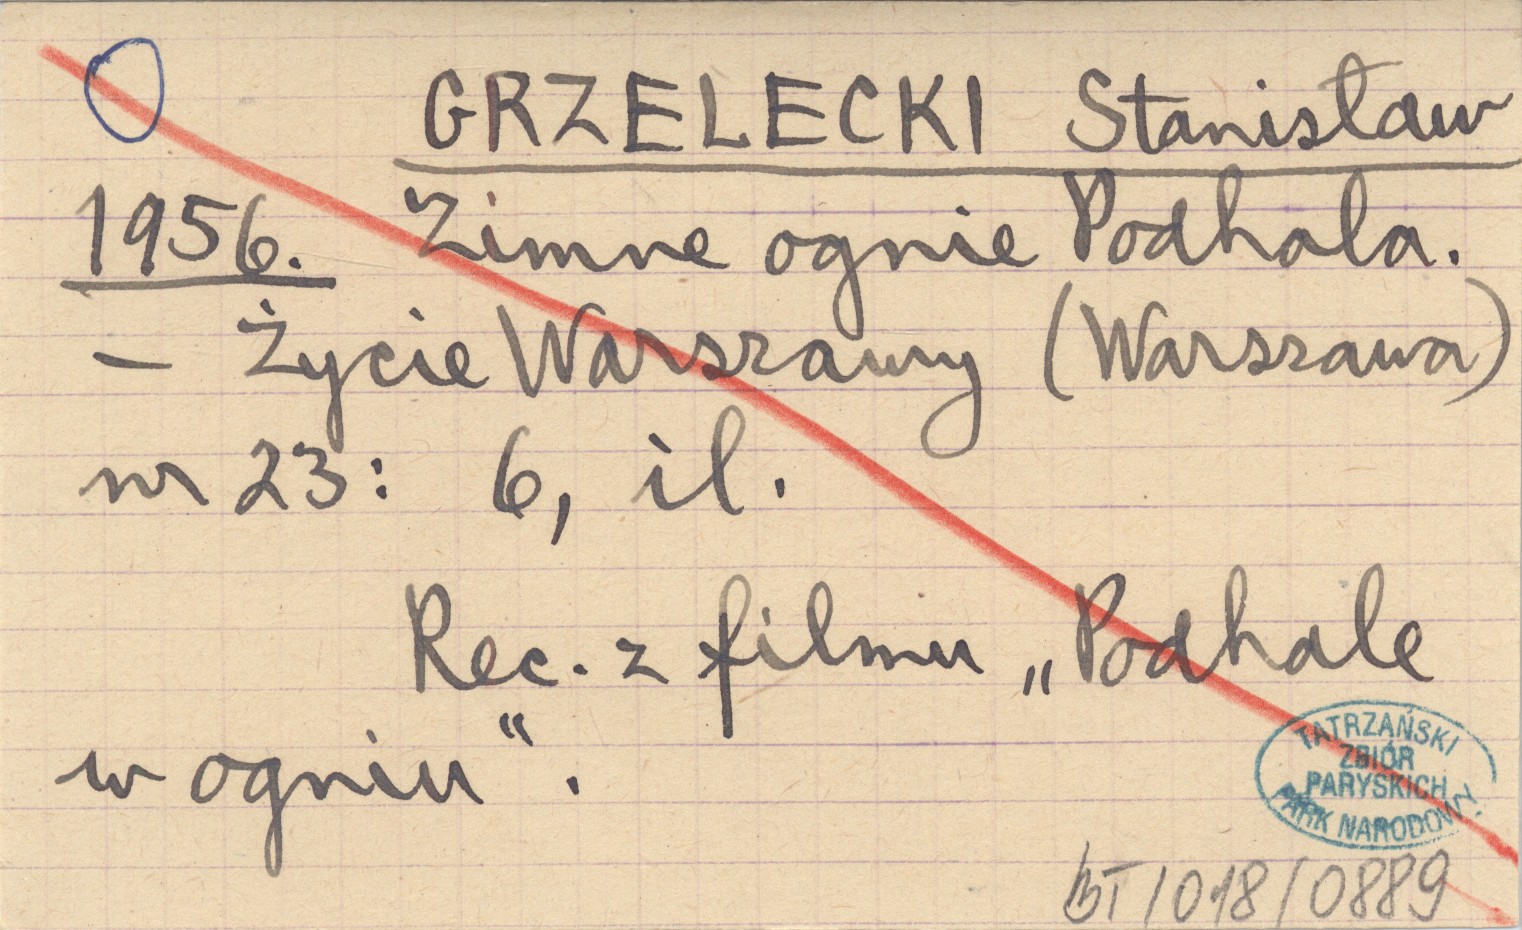 GRZELECKI Stanisław
1956. Zimne ognie Podhala.
– Życie Warszawy (Warszawa)
nr 23: 6, il.
Rec. z filmu „Podhale
w ogniu“.
TATRZAŃSKI
ZBIÓR
PARYSKICH
PARK NARODOWY
BT/018/0889